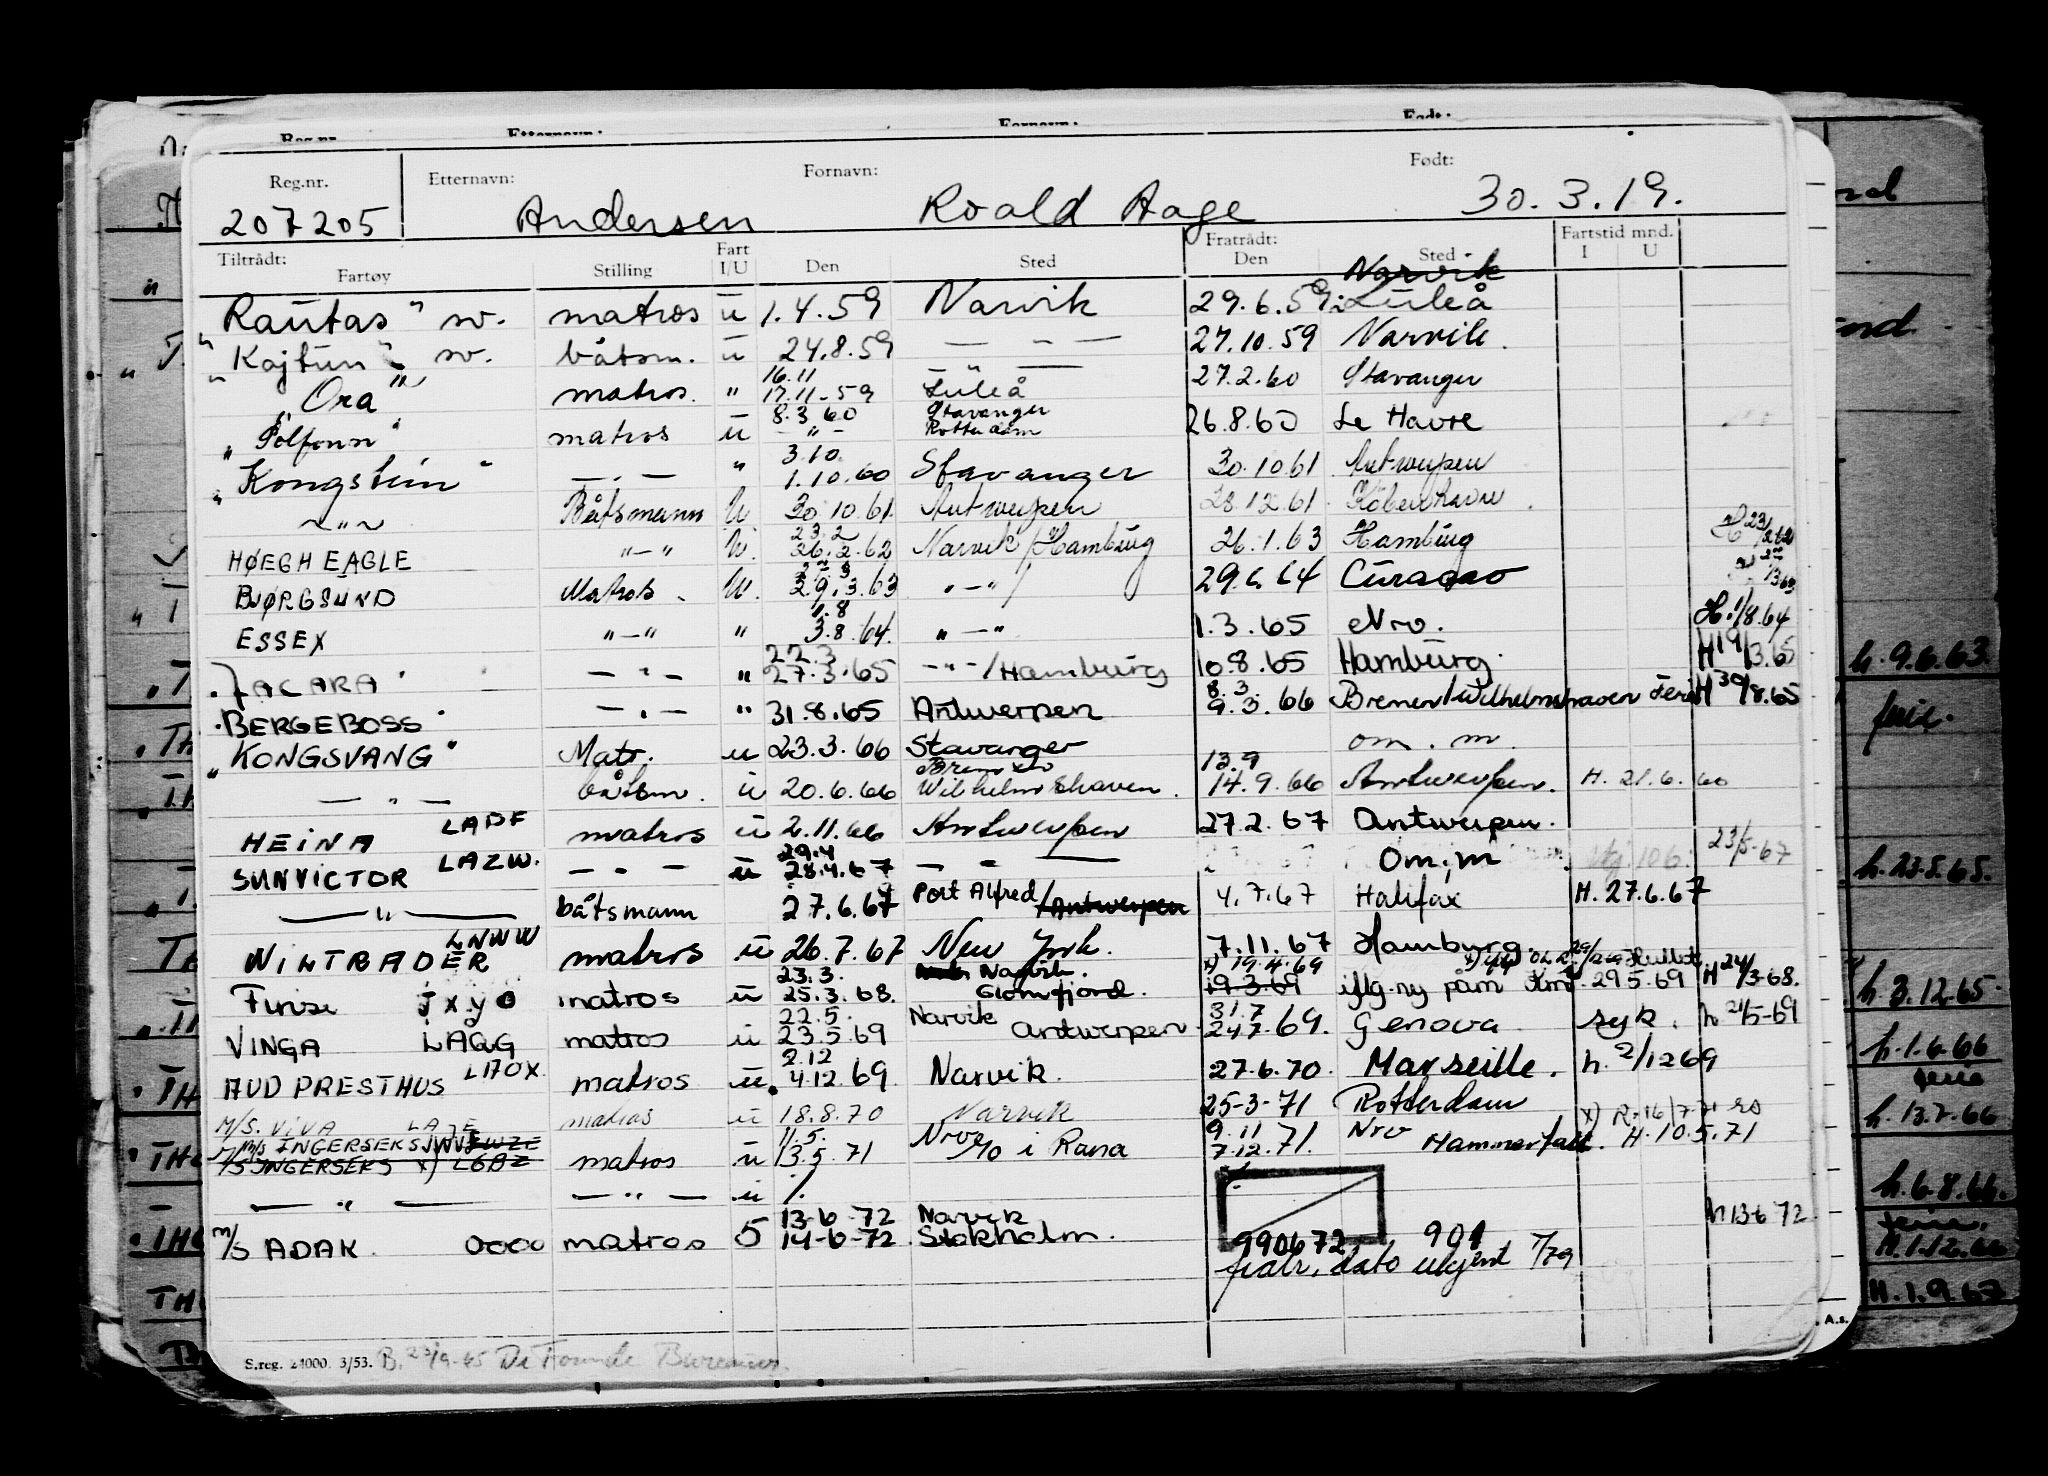 Reg.nr. Etternavn: Fornavn: Født:
207205 Andersen Roald Aage 30.3.19.
Tiltrådt: Fart Fratrådt: Fartstid mnd.
Fartøy Stilling I/U Den Sted Den Sted I U
Narvik
"Rautas" sv. matros u 1.4.59 Narvik 29.6.59 Luleå
"Kajtum" sv. båtsm. u 24.8.59 — " — 27.10.59 Narvik.
16.11
"Ora" matros. " 17.11.59 Luleå 27.2.60 Stavanger
8.3.60 Stavanger
"Polfonn" matros u — " — Rotterdam 26.8.60 Le Havre
3.10
"Kongstein" — . — " 1.10.60 Stavanger 30.10.61 Antwerpen
— " — Båtsmann U 30.10.61 Antwerpen 28.12.61. Köbenhavn
23.2
HØEGH EAGLE " — " U. 26.2.62 Narvik/Hamburg 26.1.63 Hamburg
BJØRGSUND Matros. U. 29.3.63 " — " / 29.6.64 Curacao
1.8
ESSEX " — " " 3.8.64. " — " 1.3.65 Nro. H. 1/8.64
22.3
JACARA — " — " 27.3.65 — " — / Hamburg 10.8.65 Hamburg. H 19/3.65
8.3.
BERGEBOSS — " — " 31.8.65 Antwerpen 9.3.66 Bremen/Wilhelmshaven Ferie H 30/8.65
"KONGSVANG" Matr. u 23.3.66 Stavanger om. m.
13.9
— " — båtsm. u 20.6.66 Wilhelmshaven. 14.9.66 Antwerpen. H. 21.6.60
HEINA LADF matros u 2.11.66 Antwerpen 27.2.67 Antwerpen.
29.4
SUNVICTOR LAZW. — " — u 28.4.67 — " — Om, m 23/5-67
— " — båtsmann 27.6.67 Port Alfred/Antwerpen 4.7.67 Halifax H. 27.6.67
WILTRADER LNWW matros u 26.7.67 New York. 7.11.67 Hamburg.
23.3. Narvik. x) 19.4.69
Finse JXYO matros u 25.3.68. Glomfjord. 19.3.69 29.5.69 H 24/3-68.
22.5. Narvik 31.7
VINGA LAGG matros u 23.5.69 Antwerpen 24.7.69. Genova syk. h 21/5-69
2.12
AUD PRESTHUS LAOX matros u. 4.12.69 Narvik. 27.6.70. Marseille. h. 2/12 69
M/S. VIVA LAJE matros u 18.8.70 Narvik 25-3-71 Rotterdam
11.5. Nro 9.11 Nro
M/S INGERSEKS x) LGBZ matros u 13.5.71 Mo i Rana 7.12.71. Hammerfall. H. 10.5.71
— " — — " — u /.
13-6-72 Narvik h 13-6 72
M/S ADAK. OOOO matros 5 14-6-72 Stokholm.
990672 901
fratr. dato ukjent 7/79
S.reg. 24000. 3/53. B. 23/9-65
A.s.
h. 9.6.63.
ferie.
h. 23.5.65.
h. 3.12.65.
h. 1.6.66
ferie
h. 13.7.66
h. 6.8.66.
ferie.
H. 1.12.66
H. 1.9.67